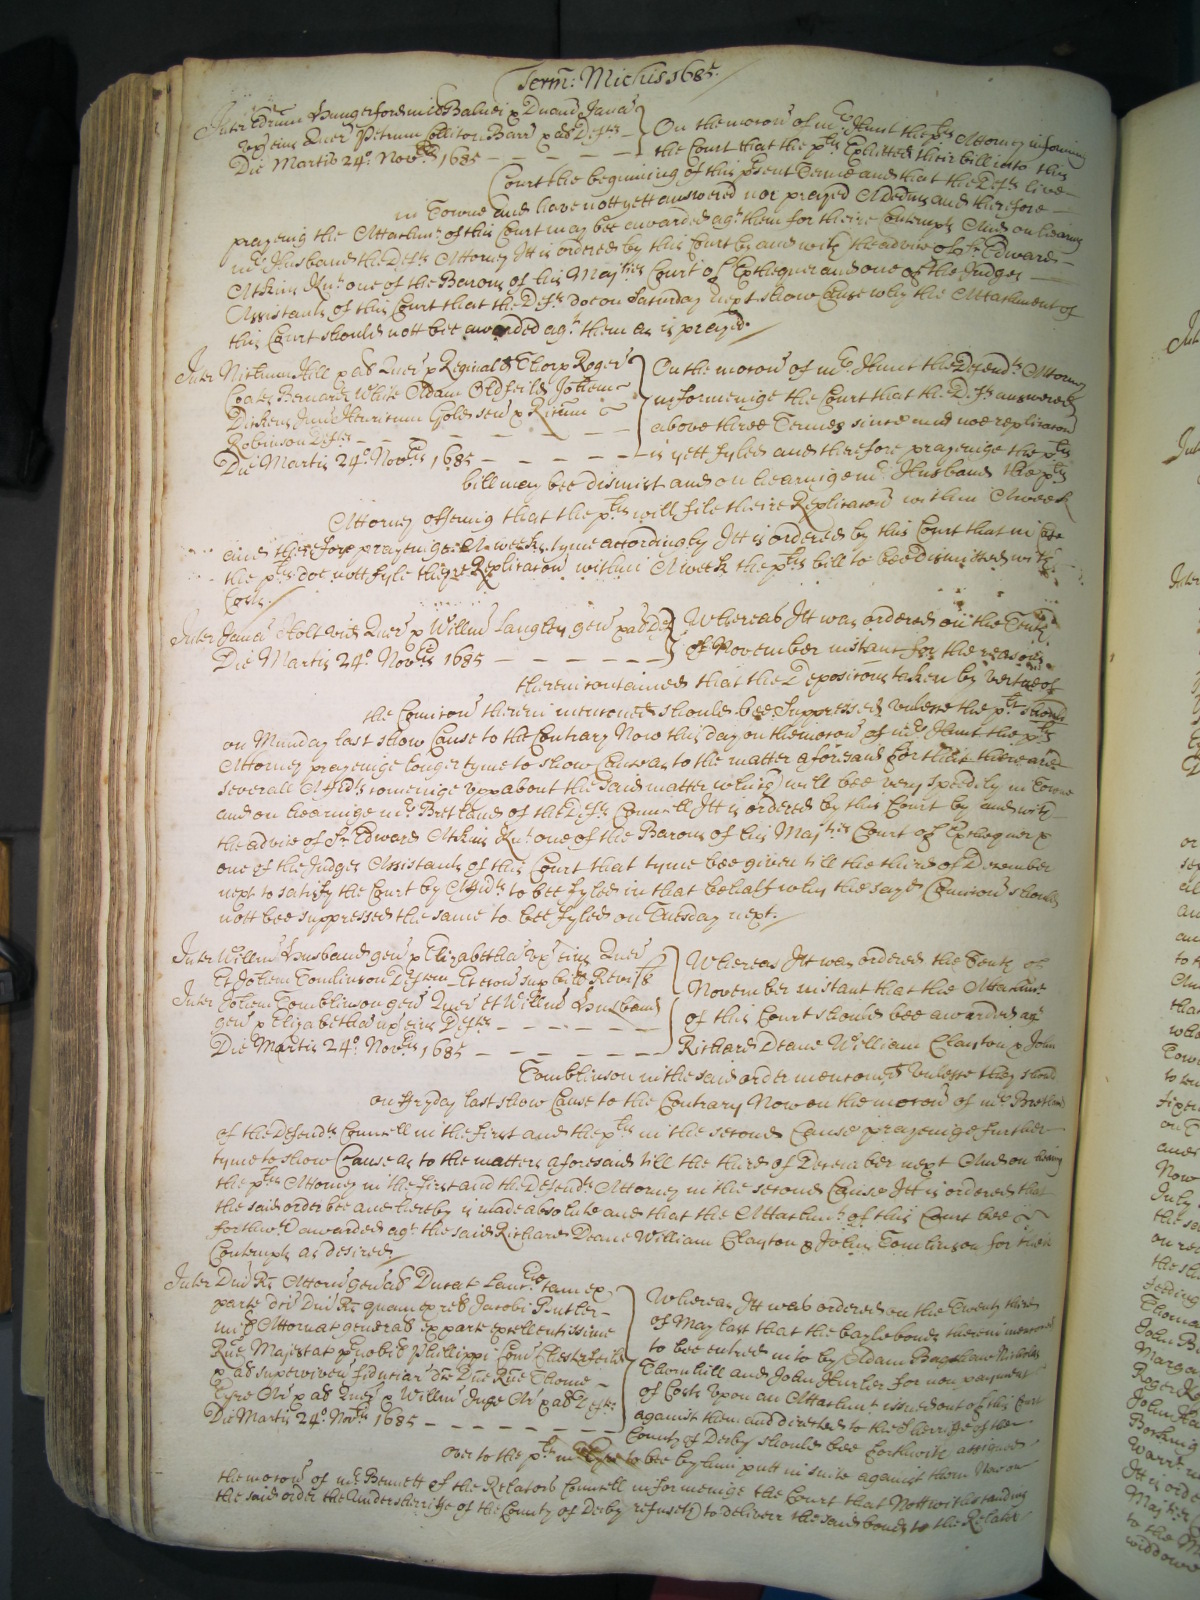 Term: Michis 1685
Inter Edrum Hungerford mil Balnei & Dnam Janã
uxem eius Quer Petrum Colliton Barr & al Defts
Die Martis 24º Novris 1685
On the mocon of mr Hunt the pls Attorney informing
the Court that the pls Exhibited their bill into this
Court the beginning of this psent Terme and that the Defts live
in Towne and have nott yett answered nor prayed and therefore
prayeing the Attachmt of this Court may bee awarded agt them for theire Contempts And on hearing
mr Husband the Defts Attorney Itt is ordered by this Court by and with the advice of Sr Edward
Atkins Knt one of the Barons of his Majties Court of Exchequer and one of the Judges
Assistants of this Court that the Defts doe on Saturday next show Cause why the Attachment of
this Court should nott bee awarded agt them as is prayed.
Inter Nichum Hill & al Quer & Reginald Thorp Roger
Coates Bernard White Adam Oldfeild Johem
Dickens Junr Henricum Goldsew & Ricum
Robinson Defts
Die Martis 24º Novris 1685
On the mocon of mr Hunt the Defendts Attorney
informeinge the Court that the Defts answered
above three Termes since and noe replicacon
is yett fyled and therefore prayeinge the pls
bill may bee dismist and on heareinge mr Husband the pls
Attorney offering that the pls will file theire Replicacon within A week
and therefore prayeinge A weeks tyme accordingly Itt is ordered by this Court that in Case
the pls doe nott fyle theire Replicacon within A week the pls bill to bee Dismissed with
Costs.
Inter Janã Holt vid Quer & Willm Langley gen & al Defts
Die Martis 24º Novris 1685
Whereas Itt was ordered on the Tenth
of November instant for the reasons
therein contained that the Deposicons taken by vertue of
the Comicon therein menconed should bee Suppressed unlesse the plt should
on Munday last show Cause to the Contrary Now this day on the mocon of mr Hunt the plts
Attorney prayeinge longer tyme to show Cause as to the matter aforesaid for that there are
severall Affidts comeinge upp about the said matter which will bee very speedily in Towne
and on heareinge mr Bretland of the Defts Councell Itt is ordered by this Court by and with
the advice of Sr Edward Atkins Knt one of the Barons of his Majties Court of Exchequer &
one of the Judges Assistants of this Court that tyme bee given till the third of December
next to satisfy the Court by Affidts to bee fyled in that behalf why the sayd Comicon should
nott bee suppressed the same to bee fyled on Tuesday next.
Inter Willm Husband gen & Elizabetha ux eius Quer
Et Johem Tomlinson Deftem Et econ sup bill Revis
Inter Johem Tomblinson gen Quer Et Willm Husband
gen & Elizabetha ux eius Defts
Die Martis 24º Novris 1685
Whereas Itt was ordered the Tenth of
November instant that the Attachmt
of this Court should bee awarded agt
Richard Deane William Clayton & John
Tomblinson in the said order menconed unlesse they should
on Fryday last show Cause to the Contrary Now on the mocon of mr Bretland
of the Defendts Councell in the first and the pls in the second Cause prayeinge further
tyme to show Cause as to the matters aforesaid till the third of December next And on hearing
the pls Attorney in the first and the Defendts Attorney in the second Cause Itt is ordered that
the said order bee and hereby is made absolute and that the Attachmt of this Court bee
forthwth awarded agt the said Richard Deane William Clayton & John Tomlinson for their
Contempts as desired
Inter Dni Rs Attorn genal Ducat Lancr tam ex
parte dci Dni Rs quam ex rel Jacobi Butler
mil Attornat general ex parte excellentissime
Rne Majestat pnobil Phillippi Com Chesterfeild
& al supervivend fiduciar dce Dne Rne Thome
Eyre Ar & al Quer & Willm Inge Ar & al Defts
Die Martis 24º Novris 1685
Whereas Itt was ordered on the Twenty third
of May last that the bayle bonds therein menconed
to bee entred into by Adam Bagshaw Nicholas
Thornhill and John Hurler for non payment
of Costs upon an Attachmt issued out of this Court
against them and directed to the Sherriffe of the
County of Derby should bee forthwith assigned
over to the plt mr Eyre to bee by him putt in suite against them Now on
the mocon of mr Bennett of the Relators Councell informeinge the Court that Nottwithstanding
the said order the Undersherriffe of the County of Derby refuseth to deliver the said bonds to the Relator